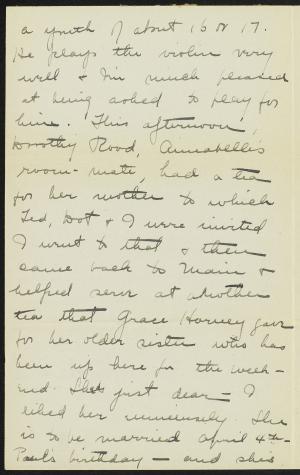 a youth of about 16 or 17.
He plays the violin very
well & I'm much pleased
at being asked to play for
him. This afternoon,
Dorothy Rood, Annabelle's
room-mate, had a tea
for her mother to which
Ted, Dot & I were invited
I went to that & then
came back to Main &
helped serve at another
tea that Grace Harvey gave
for her older sister who has
been up here for the week-
end. She's just dear - I
liked her immensely. She
is to be married April 4th -
Paul's birthday - and she's